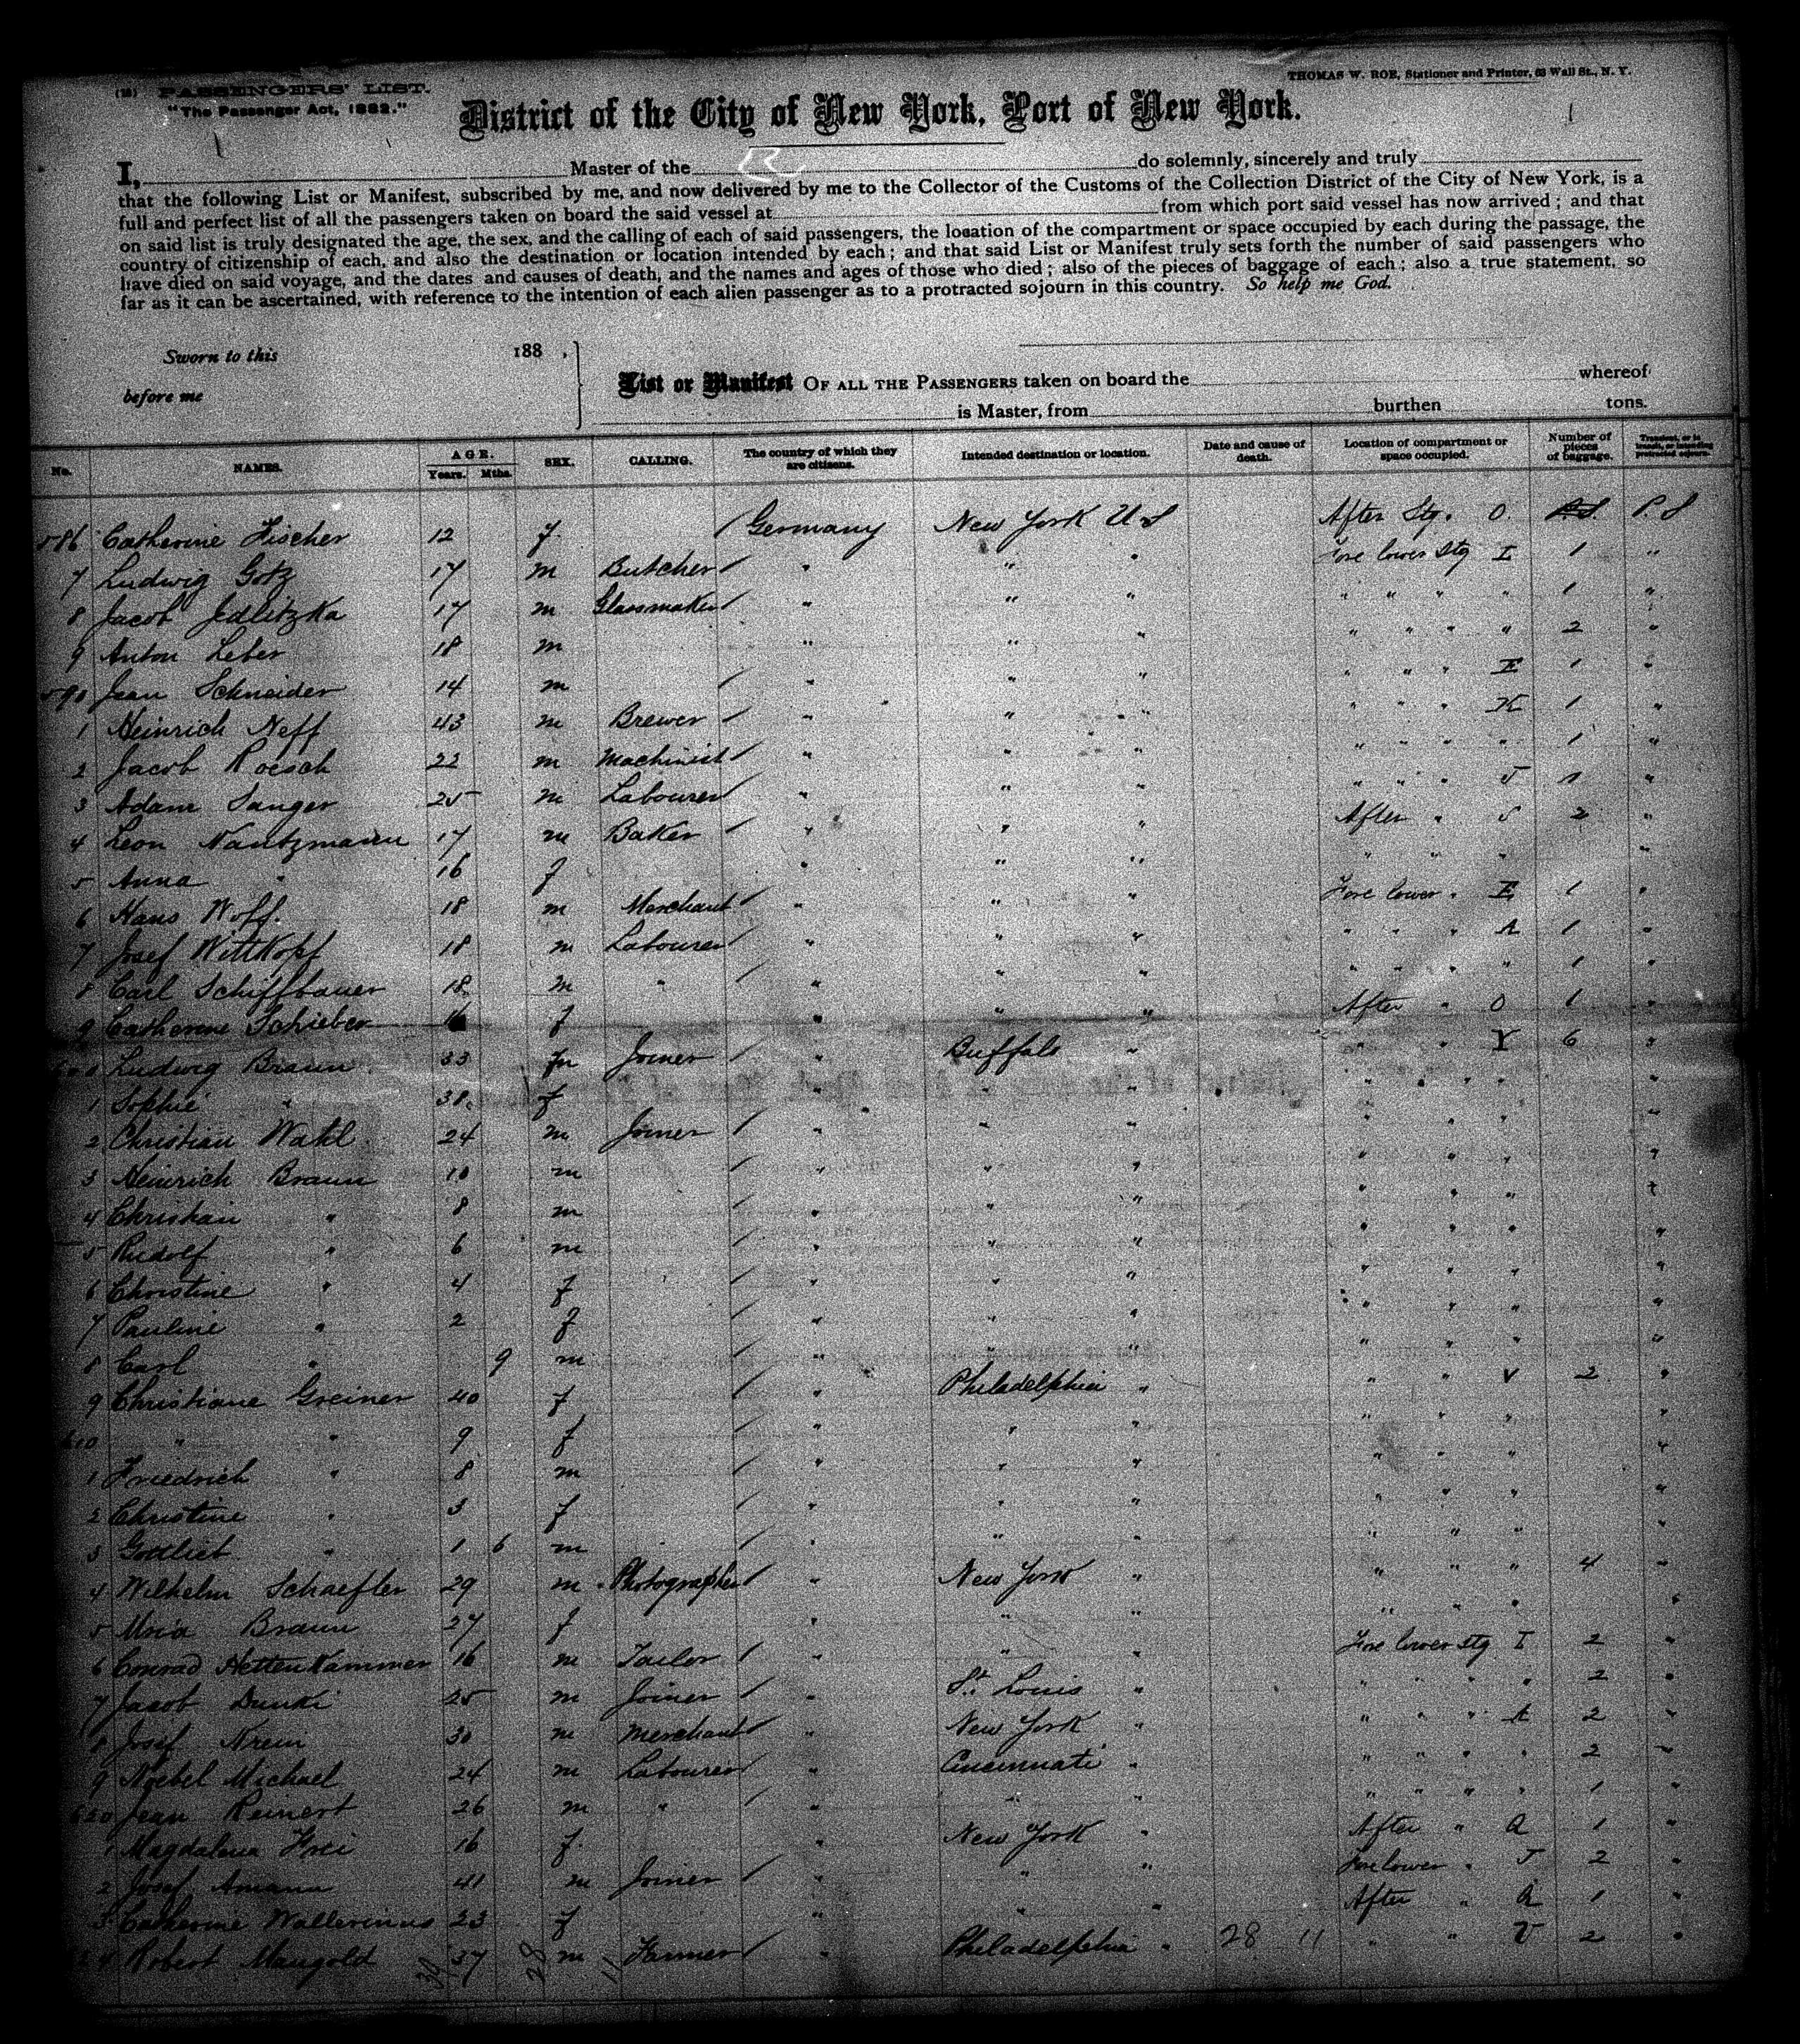 (12) PASSENGERS' LIST.
"The Passenger Act, 1882."
THOMAS W. ROE, Stationer and Printer, 63 Wall St., N. Y.
District of the City of New York, Port of New York.
I, Master of the do solemnly, sincerely and truly
that the following List or Manifest, subscribed by me, and now delivered by me to the Collector of the Customs of the Collection District of the City of New York, is a
full and perfect list of all the passengers taken on board the said vessel at from which port said vessel has now arrived; and that
on said list is truly designated the age, the sex, and the calling of each of said passengers, the location of the compartment or space occupied by each during the passage, the
country of citizenship of each, and also the destination or location intended by each; and that said List or Manifest truly sets forth the number of said passengers who
have died on said voyage, and the dates and causes of death, and the names and ages of those who died; also of the pieces of baggage of each; also a true statement, so
far as it can be ascertained, with reference to the intention of each alien passenger as to a protracted sojourn in this country. So help me God.
Sworn to this 188 .
before me
List or Manifest OF ALL THE PASSENGERS taken on board the whereof
is Master, from burthen tons.
No. NAMES. AGE. Years. Mths. SEX. CALLING. The country of which they are citizens. Intended destination or location. Date and cause of death. Location of compartment or space occupied. Number of pieces of baggage. Transient, or in transit, or intending protracted sojourn.
586 Catherine Fischer 12 f / Germany New York U S After Stg. O. P. S
7 Ludwig Gotz 17 m Butcher / " " " Fore lower Stg I 1 "
8 Jacob Jedlitzka 17 m Glassmaker / " " " " " " " 1 "
9 Anton Leber 18 m " " " " " " " 2 "
590 Jean Schneider 14 m / " " " " " " E 1 "
1 Heinrich Neff 43 m Brewer / " " " " " " K 1 "
2 Jacob Roesch 22 m Machinist / " " " " " " " 1 "
3 Adam Sanger 25 m Labourer / " " " " " " J 1 "
4 Leon Nantzmann 17 m Baker / " " " After " S 2 "
5 Anna " 16 f " " " " " " "
6 Hans Woff. 18 m Merchant / " " " Fore lower " E 1 "
7 Josef Wittkopf 18 m Labourer / " " " " " " A 1 "
8 Carl Schiffbauer 18 m " / " " " " " " " 1 "
9 Catherine Schieber 16 f " " " After " O 1 "
600 Ludwig Braun 33 m Joiner / " Buffalo " " " Y 6 "
1 Sophie " 38 f " " " " " " "
2 Christian Wahl 24 m Joiner / " " " " " " "
3 Heinrich Braun 10 m / " " " " " " "
4 Christian " 8 m " " " " " " "
5 Rudolf " 6 m / " " " " " " "
6 Christine " 4 f / " " " " " " "
7 Pauline " 2 f / " " " " " " "
8 Carl " 9 m / " " " " " " "
9 Christiane Greiner 40 f / " Philadelphia " " " V 2 "
610 " " 9 f / " " " " " " "
1 Friedrich " 8 m / " " " " " " "
2 Christine " 3 f / " " " " " " "
3 Gottlieb " 1 6 m / " " " " " " "
4 Wilhelm Schaefler 29 m Photographer / " New York " " " " 4 "
5 Maria Braun 27 f " " " " " " "
6 Conrad Hettenkammer 16 m Tailor / " " " Fore lower stg I 2 "
7 Jacob Dunki 25 m Joiner / " St. Louis " " " " " 2 "
8 Josef Krein 30 m Merchant / " New York " " " " A 2 "
9 Noebel Michael 24 m Labourer / " Cincinnati " " " " " 2 "
620 Jean Reinert 26 m " / " " " " " " " 1 "
1 Magdalena Frei 16 f " New York " After " Q 1 "
2 Josef Amann 41 m Joiner / " " " Fore lower " J 2 "
3 Catherine Wallerinus 23 f " " " After " Q 1 "
624 Robert Mangold 37 m Farmer / " Philadelphia " 28 11 " " V 2 "
30 28 11